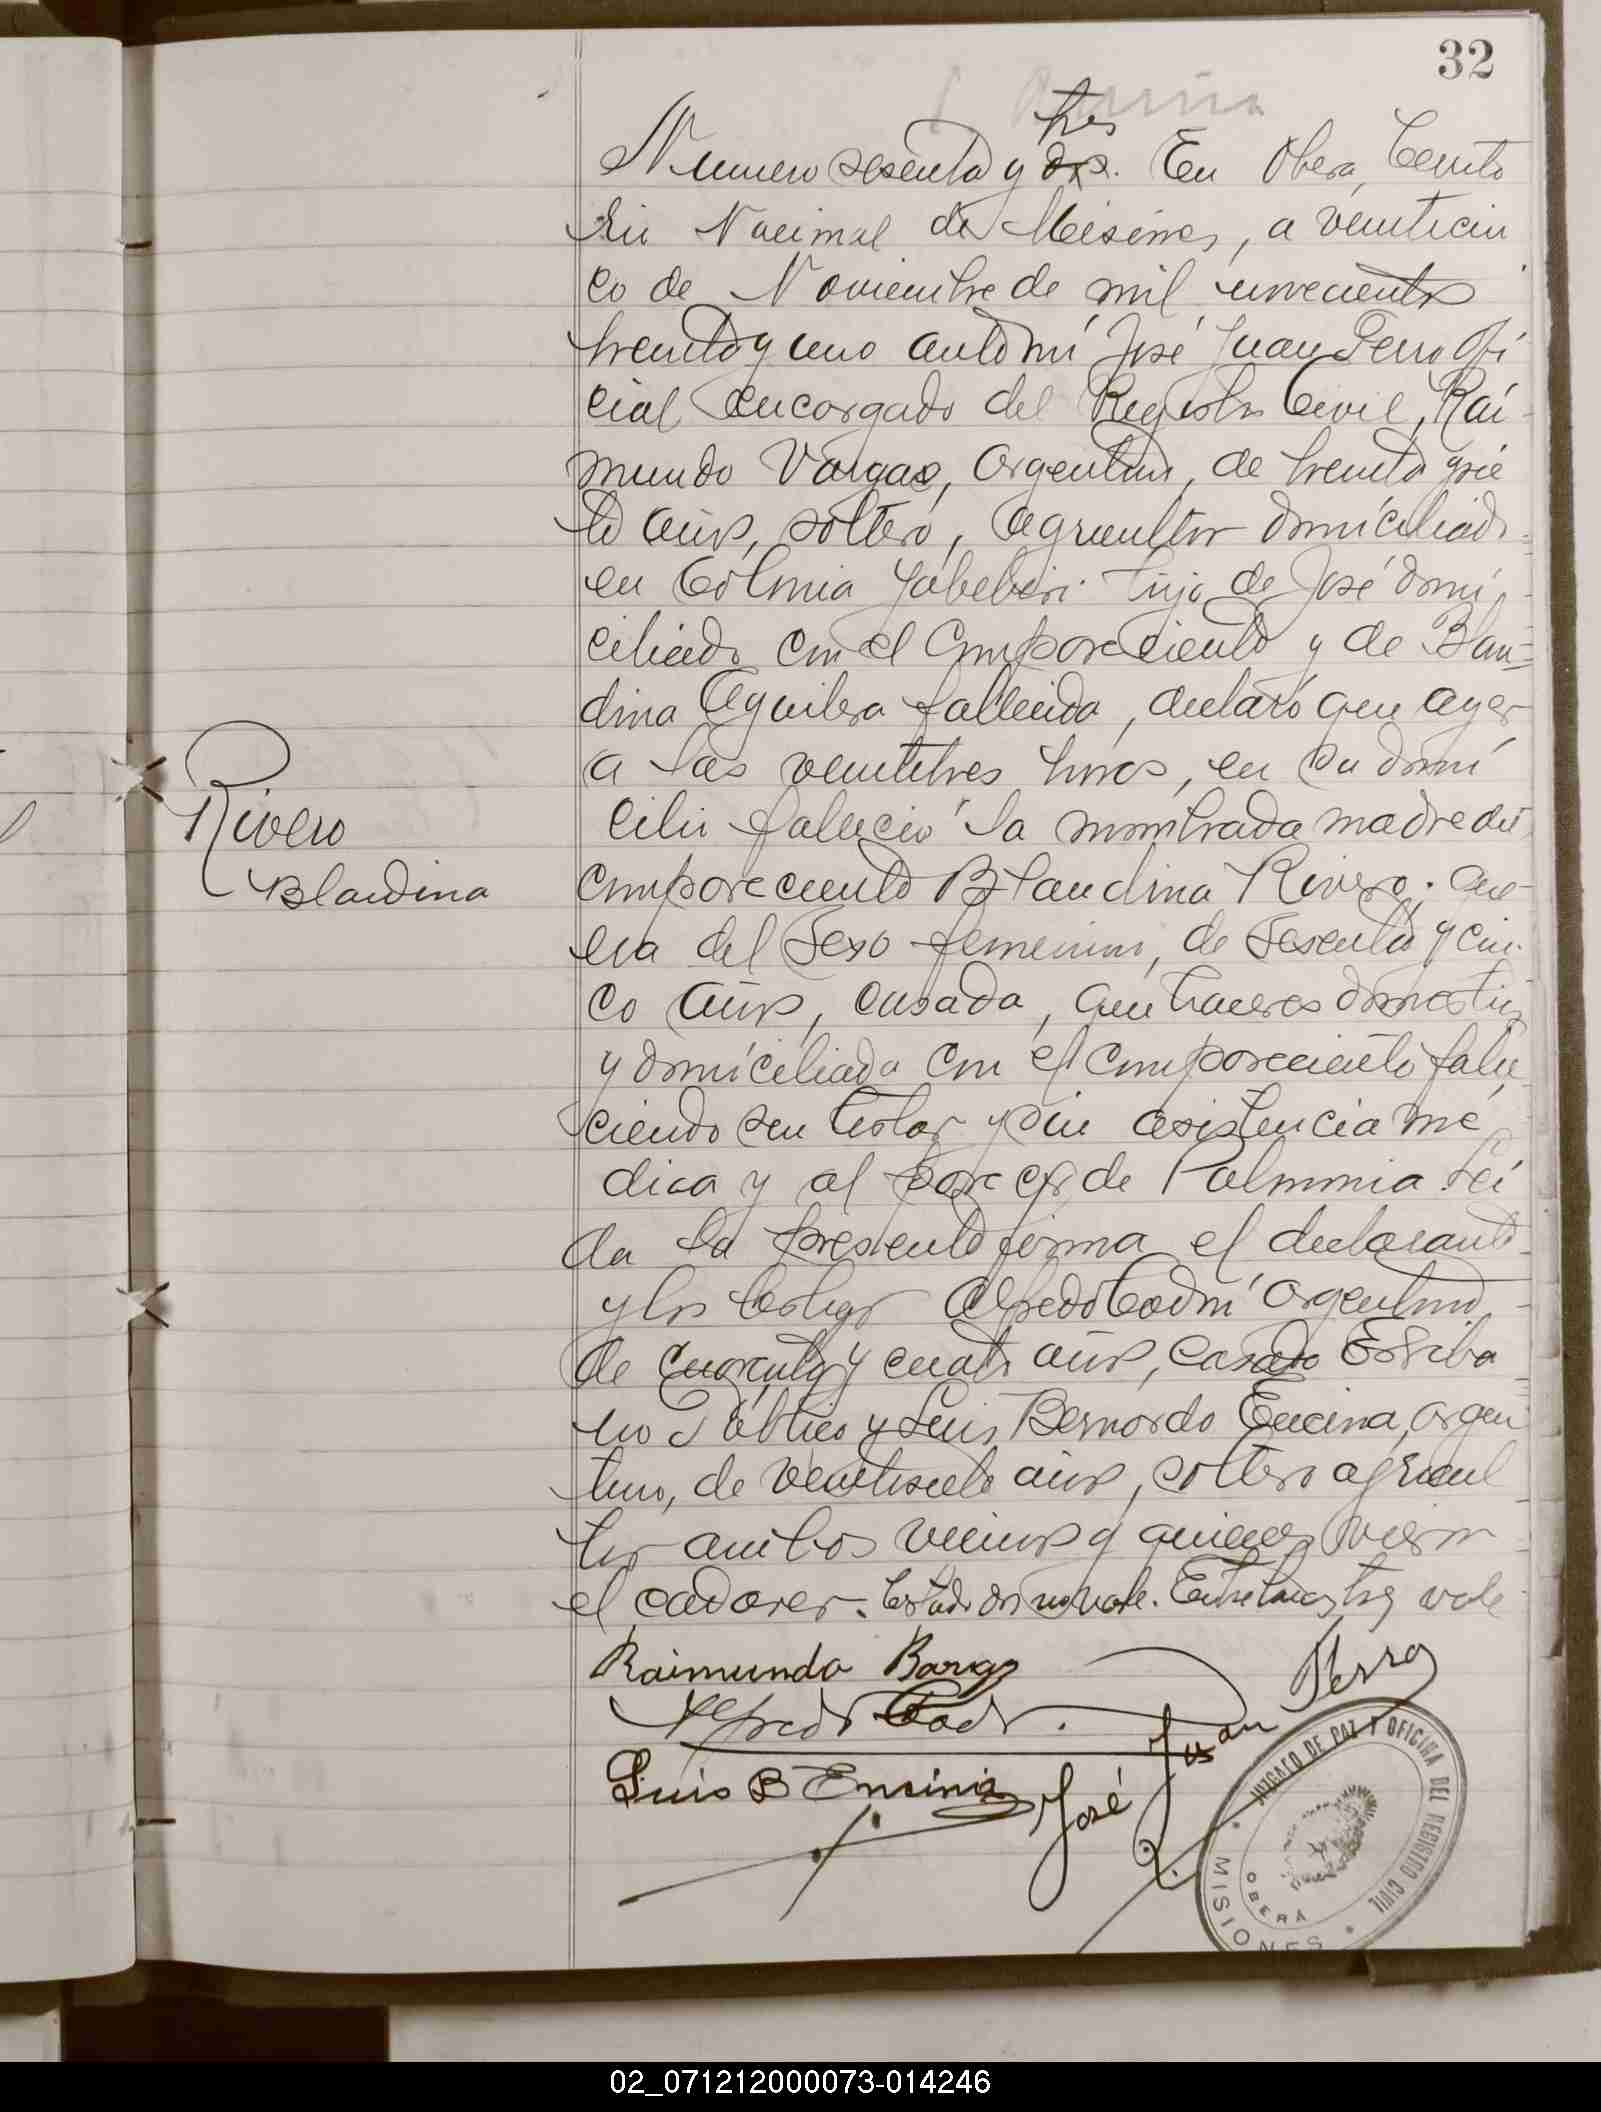 32
Numero sesenta y dos tres. En Obera, Territo
rio Nacional de Misiones, a veinticin
co de Noviembre de mil novecientos
treinta y uno ante mi José Juan Ferro Ofi
cial encargado del Registro Civil, Rai
mundo Vargas, argentino, de treinta y sie
te años, soltero, agricultor domiciliado
en Colonia Yabebiri hijo de José domi
ciliado con el compareciente y de Blan=
dina Aguilera fallecida, declaró que ayer
a las veintitres horas, en su domi
cilio falleció la nombrada madre del
compareciente Blandina Rivero; que
Rivero
Blandina
era del sexo femenino, de sesenta y cin
co años, casada, quehaceres domesticos
y domiciliada con el compareciente falle
ciendo sin testar y sin asistencia me
dica y al parecer de Pulmonia Lei
da la presente firma el declarante
y los testigos Alfredo Codni argentino
de cuarenta y cuatro años, casado Escriba
no Público y Luis Bernardo Encina, argen
tino, de veintisiete años, soltero agricul
tor ambos vecinos y quienes vieron
el cadaver. Testado dos no vale. Entrelineas tres vale
Raimundo Bargas
Alfredo
Luis B Ensina
José Juan Ferro
JUZGADO DE PAZ Y OFICINA DEL REGISTRO CIVIL
OBERÁ
MISIONES
02_071212000073-014246